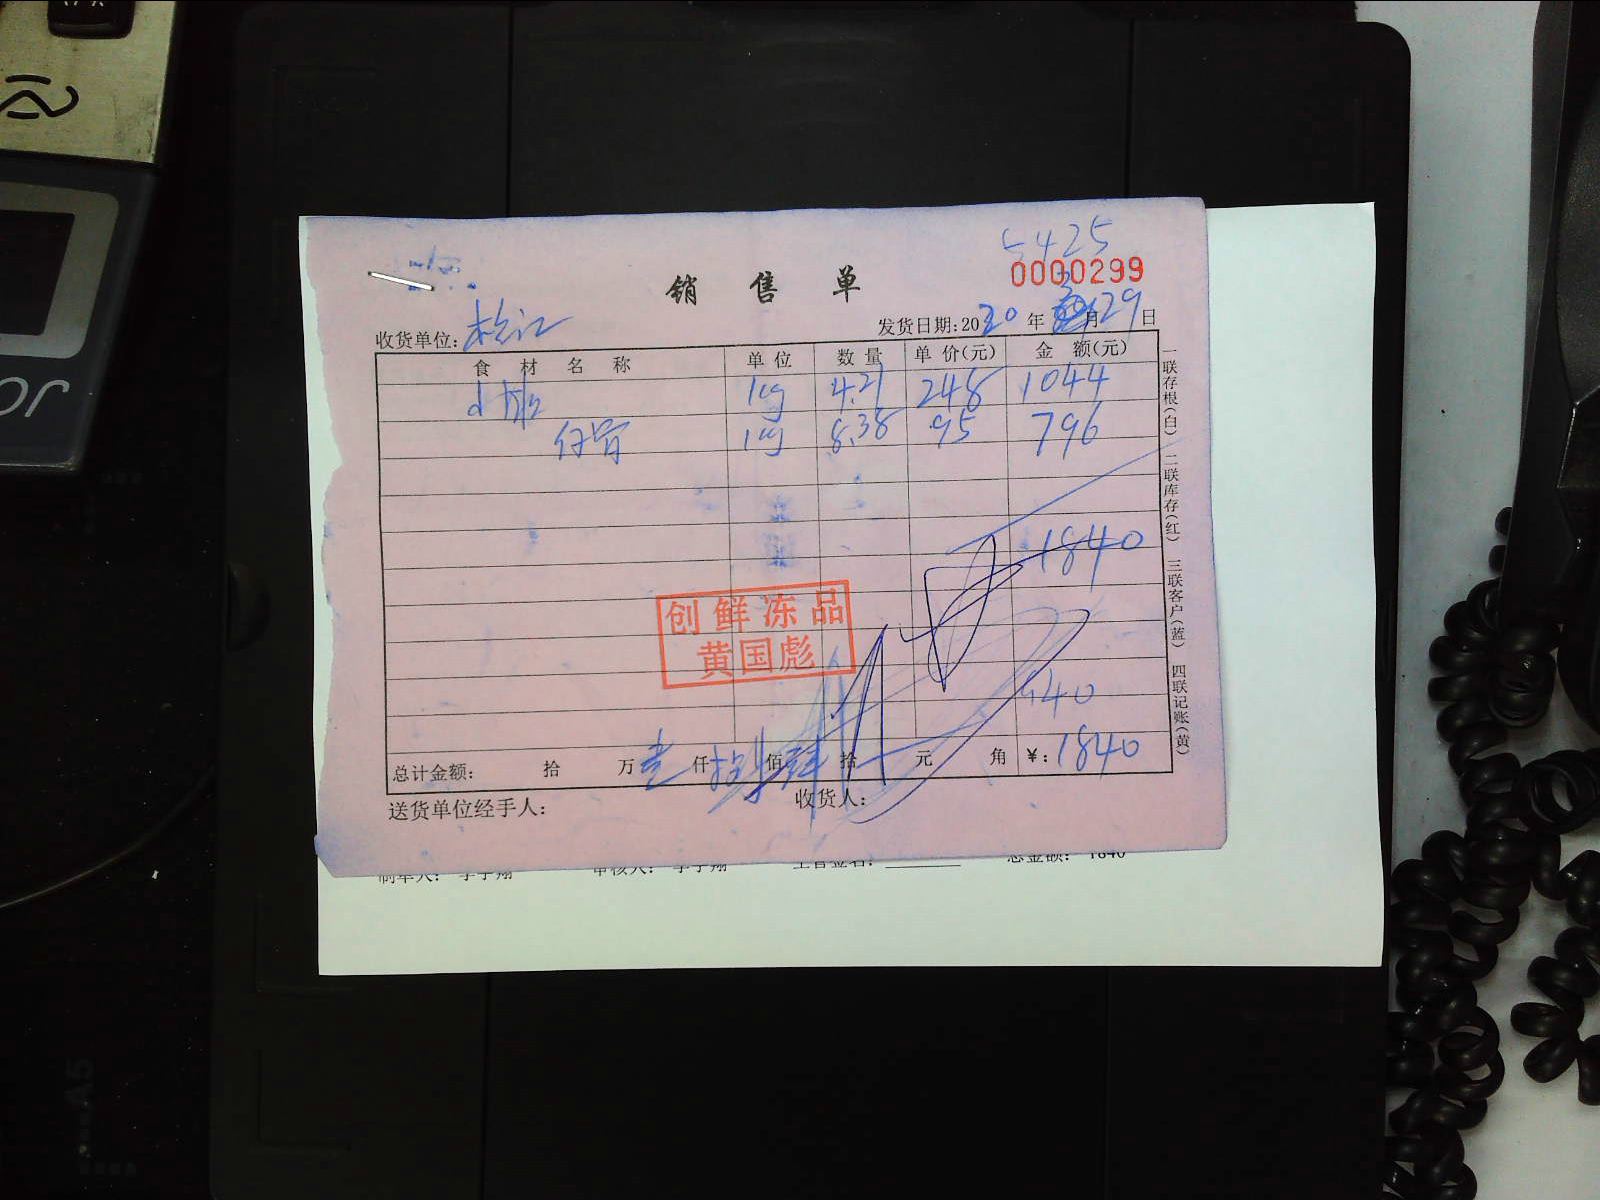 5425
销售单 0000299
收货单位: 松江 发货日期:2020 年 3 月 29 日
食材名称 单位 数量 单价(元) 金额(元)
kg 4.21 248 1044
仔骨 kg 8.38 95 796
1840
创鲜冻品
黄国彪
总计金额: 拾 万 壹 仟 捌 佰 肆 拾 元 角 ¥: 1840
送货单位经手人: 收货人:
一联存根(白) 二联库存(红) 三联客户(蓝) 四联记账(黄)
制单人: 李宇翔 审核人: 李宇翔 主管签名: 总金额: 1840
A5